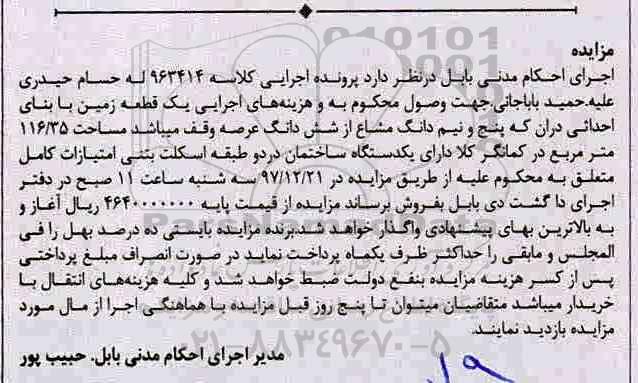 مزایده
اجرای احکام مدنی بابل درنظر دارد پرونده اجرایی کلاسه ۹۶۳۴۱۴ له حسام حیدری
علیه.حمید باباجانی.جهت وصول محکوم به و هزینه‌های اجرایی یک قطعه زمین با بنای
احداثی دران که پنج و نیم دانگ مشاع از شش دانگ عرصه وقف میباشد مساحت ۱۱۶/۳۵
متر مربع در کمانگر کلا دارای یکدستگاه ساختمان دردو طبقه اسکلت بتنی امتیازات کامل
متعلق به محکوم علیه از طریق مزایده در ۹۷/۱۲/۲۱ سه شنبه ساعت ۱۱ صبح در دفتر
اجرای دا گشت دی بابل بفروش برساند مزایده از قیمت پایه ۴۶۴۰۰۰۰۰۰۰ ریال آغاز و
به بالاترین بهای پیشنهادی واگذار خواهد شد.برنده مزایده بایستی ده درصد بهل را فی
المجلس و مابقی را حداکثر ظرف یکماه پرداخت نماید در صورت انصراف مبلغ پرداختی
پس از کسر هزینه مزایده بنفع دولت ضبط خواهد شد و کلیه هزینه‌های انتقال با
خریدار میباشد متقاضیان میتوان تا پنج روز قبل مزایده با هماهنگی اجرا از مال مورد
مزایده بازدید نمایند.
مدیر اجرای احکام مدنی بابل. حبیب پور
۰۲۱-۸۸۳۴۹۶۷۰-۵